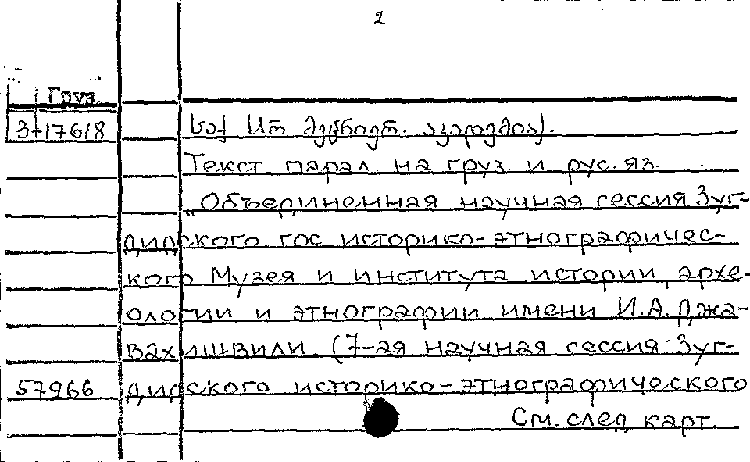 2
Груз
3-17618 საქ სსრ მეცნიერ. აკადემია).
Текст парал на груз и рус.яз.
„Объединенная научная сессия Зуг-
дидского гос историко-этнографичес-
кого Музея и института истории, архе-
ологии и этнографии имени И.А.Джа-
вахишвили (7-ая научная сессия Зуг-
57966 дидского историко-этнографического
См. след карт.